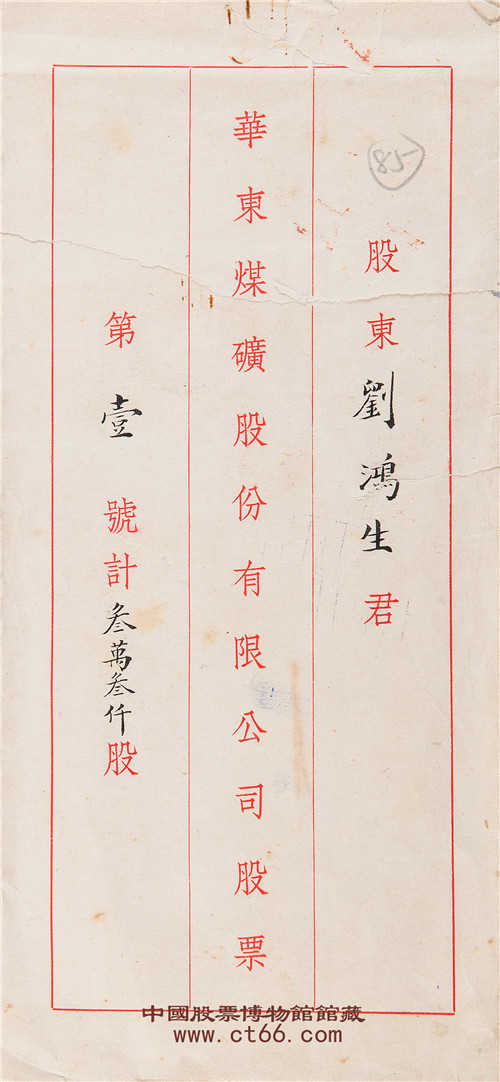 股東劉鴻生君
華東煤礦股份有限公司股票
第壹號計叁萬叁仟股
85-
中國股票博物館館藏
www.ct66.com